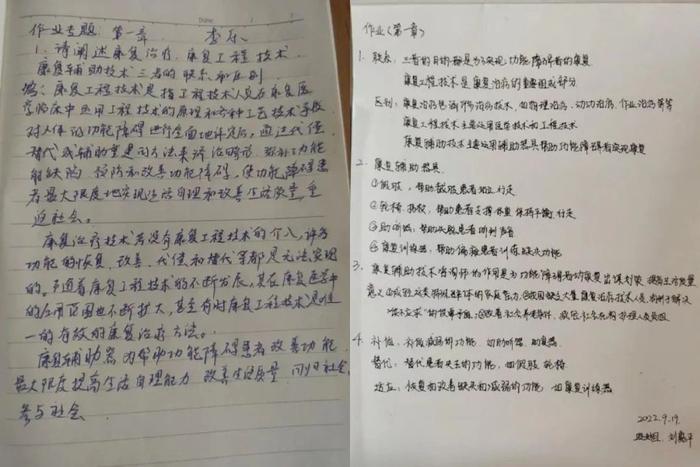 作业专题:第一章 李乐
1、请阐述康复治疗、康复工程技术、
康复辅助技术三者的联系和区别
答:康复工程技术是指工程技术人员在康复医
学临床中运用工程技术的原理和各种工艺技术手段
对人体的功能障碍进行全面地评定后,通过代偿、
替代或辅助重建的方法来矫治畸形、弥补功能
缺陷、预防和改善功能障碍,使功能障碍患
者最大限度地实现生活自理和改善生活质量,重
返社会。
康复治疗技术若没有康复工程技术的介入,许多
功能的恢复、改善、代偿和替代等都是无法实现
的。随着康复工程技术的不断发展,其在康复医学中
的应用范围也不断扩大,甚至有时康复工程技术是唯
一的有效的康复治疗方法。
康复辅助器为帮助功能障碍患者改善功能,
最大限度提高生活自理能力,改善生活质量,回归社会
参与社会
作业(第一章)
1. 联系:三者的目的都是为了实现功能障碍者的康复
康复工程技术是康复治疗的重要组成部分
区别:康复治疗包括作治疗技术,如物理治疗、运动治疗、作业治疗等等
康复工程技术主要运用医学技术和工程技术
康复辅助技术主要运用辅助器具帮助功能障碍者实现康复
2. 康复辅助器具
①假肢,帮助截肢患者站立行走
②轮椅、拐杖,帮助患者支撑体重保持平衡,行走
③助听器:帮助失聪患者听到声音
④康复训练器,帮助偏瘫患者训练缺失功能
3. 康复辅助技术咨询师的作用是为功能障碍者的康复出谋划策,提高生活质量
意义:
4. 补偿:补偿减弱的功能 如助听器、助视器
替代:替代患者失去的功能,如假肢 轮椅
适应:恢复和改善缺失和减弱的功能 如康复训练器
2022.9.19.